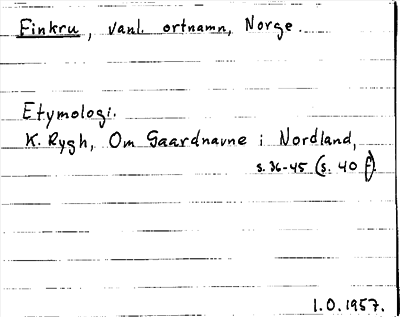 Finkru, vanl. ortnamn, Norge.
Etymologi.
K. Rygh, Om Gaardnavne i Nordland,
s. 36-45 (s. 40 f).
1.0.1957.